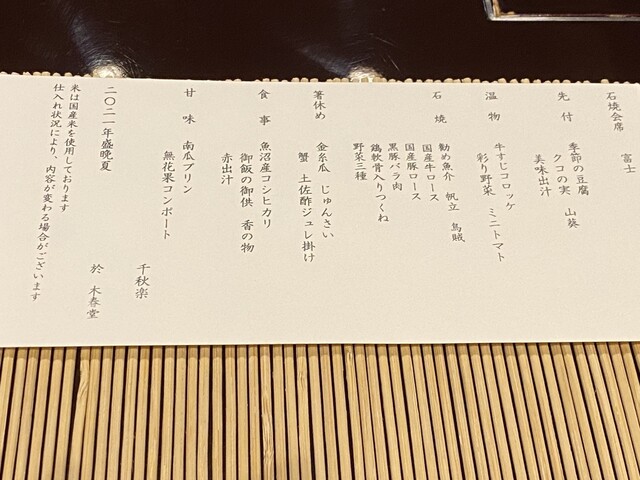 石焼会席　富士
先付　季節の豆腐
クコの実　山葵
美味出汁
温物　牛すじコロッケ
彩り野菜　ミニトマト
石焼　勧め魚介　帆立　烏賊
国産牛ロース
国産豚ロース
黒豚バラ肉
鶏軟骨入りつくね
野菜三種
箸休め　金糸瓜　じゅんさい
蟹　土佐酢ジュレ掛け
食事　魚沼産コシヒカリ
御飯の御供　香の物
赤出汁
甘味　南瓜プリン
無花果コンポート
千秋楽
二〇二一年盛晩夏
於　木春堂
米は国産米を使用しております
仕入れ状況により、内容が変わる場合がございます